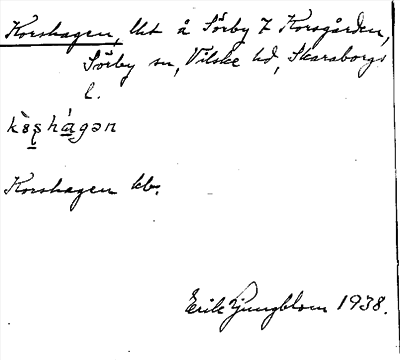 Korshagen, lht å Sörby 7 Korsgården,
Sörby sn, Vilske hd, Skaraborgs
l.
Korshagen kb.
Erik Ljungblom 1938.